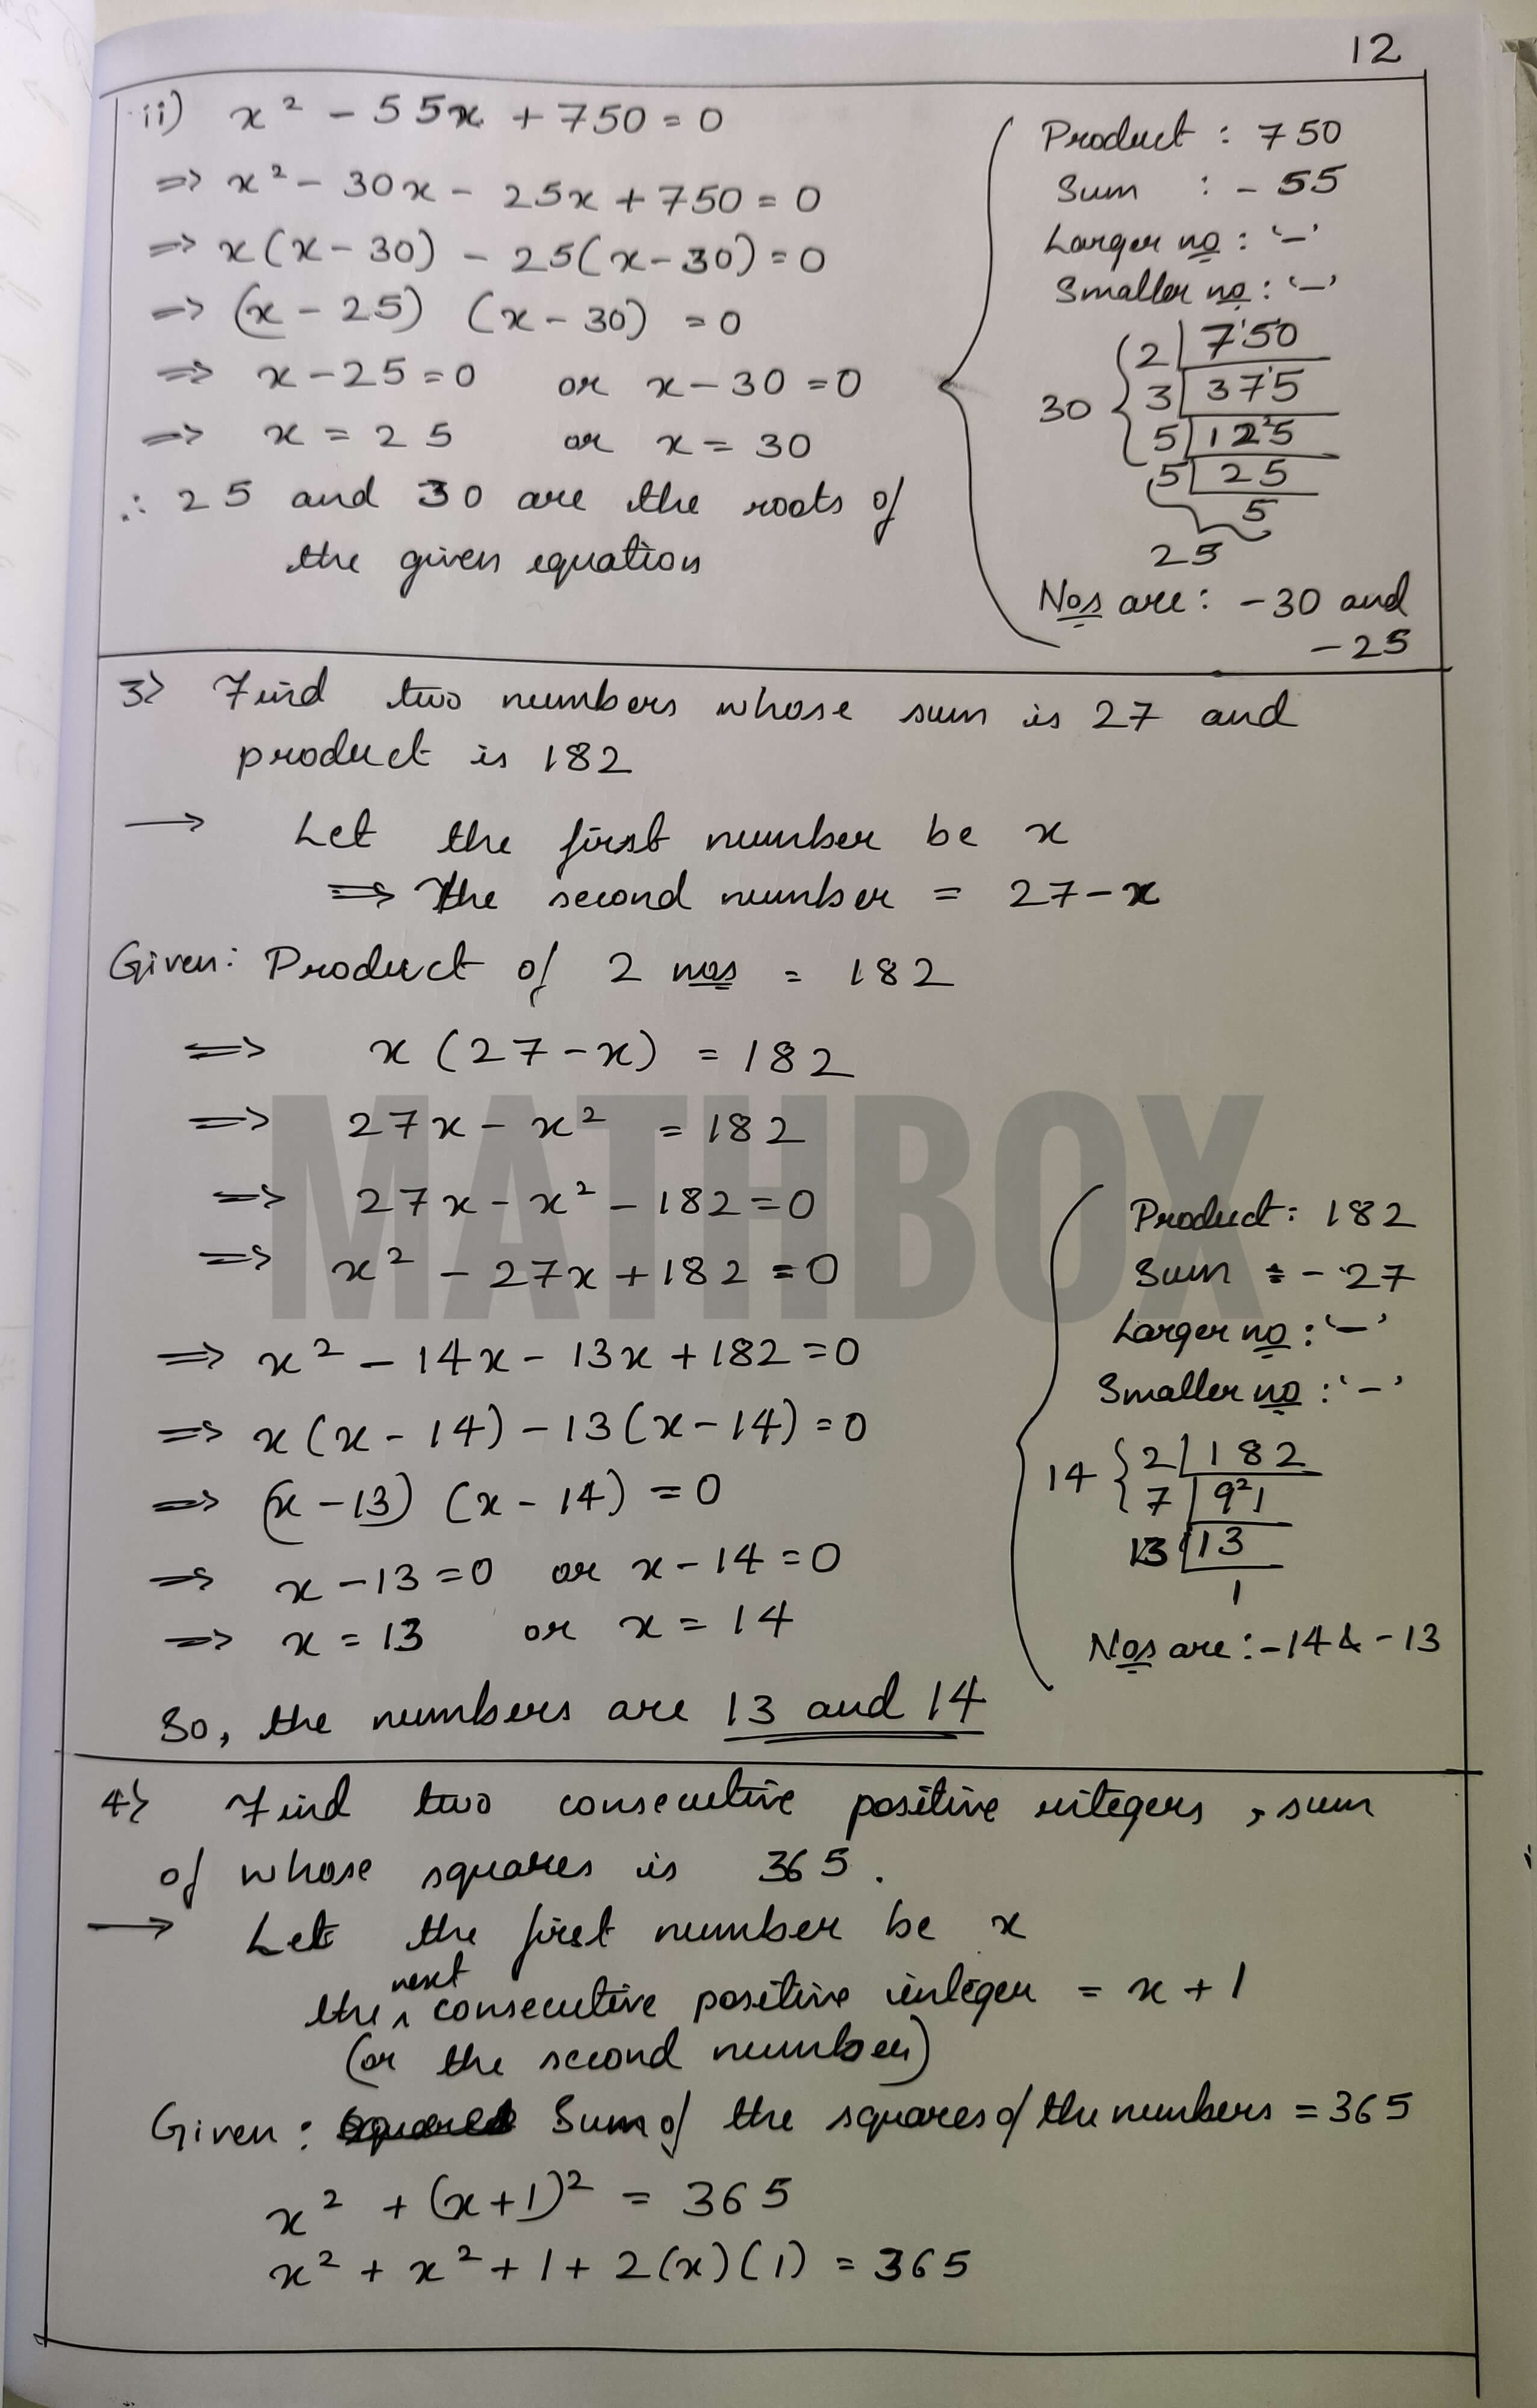 12
ii) x² - 55x + 750 = 0
=> x² - 30x - 25x + 750 = 0
=> x(x - 30) - 25(x - 30) = 0
=> (x - 25) (x - 30) = 0
=> x - 25 = 0 or x - 30 = 0
=> x = 25 or x = 30
∴ 25 and 30 are the roots of
the given equation
Product : 750
Sum : - 55
Larger no : '-'
Smaller no : '-'
2 | 750
30 { 3 | 375
5 | 125
5 | 25
5
25
Nos are : -30 and
-25
3> Find two numbers whose sum is 27 and
product is 182
→ Let the first number be x
=> The second number = 27 - x
Given: Product of 2 nos = 182
=> x (27 - x) = 182
=> 27x - x² = 182
=> 27x - x² - 182 = 0
=> x² - 27x + 182 = 0
=> x² - 14x - 13x + 182 = 0
=> x (x - 14) - 13 (x - 14) = 0
=> (x - 13) (x - 14) = 0
=> x - 13 = 0 or x - 14 = 0
=> x = 13 or x = 14
So, the numbers are 13 and 14
MATHBOX
Product : 182
Sum : - 27
Larger no : '-'
Smaller no : '-'
14 { 2 | 182
7 | 91
13 | 13
1
Nos are : -14 & -13
4> Find two consecutive positive integers, sum
of whose squares is 365.
→ Let the first number be x
the next consecutive positive integer = x + 1
(or the second number)
Given : Sum of the squares of the numbers = 365
x² + (x+1)² = 365
x² + x² + 1 + 2(x)(1) = 365